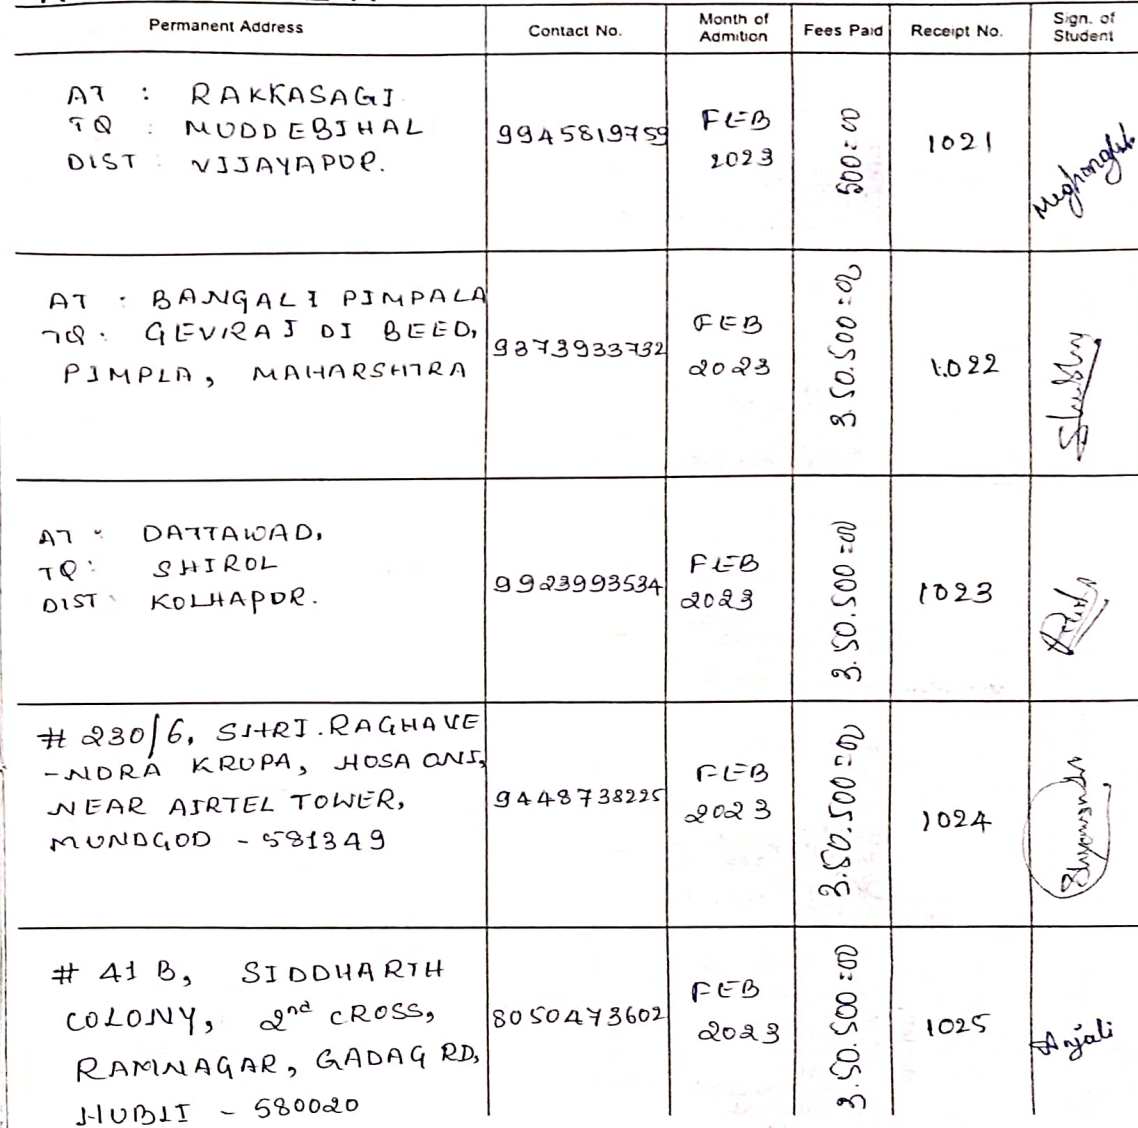 Permanent Address Contact No. Month of Admition Fees Paid Receipt No. Sign. of Student
AT : RAKKASAGI
TQ : MUDDEBIHAL
DIST : VIJAYAPUR.
9945819759
FEB
2023
500=00
1021
AT : BANGALI PIMPALA
TQ : GEVIRAI DI BEED,
PIMPLA, MAHARSHTRA
9373933732
FEB
2023
3.50.500=00
1022
AT : DATTAWAD,
TQ : SHIROL
DIST : KOLHAPUR.
9923993534
FEB
2023
3.50.500=00
1023
# 230/6, SHRI.RAGHAVE
-NDRA KRUPA, HOSA ONI,
NEAR AIRTEL TOWER,
MUNDGOD - 581349
9448738225
FEB
2023
3.50.500=00
1024
# 41 B, SIDDHARTH
COLONY, 2nd CROSS,
RAMNAGAR, GADAG RD,
HUBLI - 580020
8050473602
FEB
2023
3.50.500=00
1025
Anjali